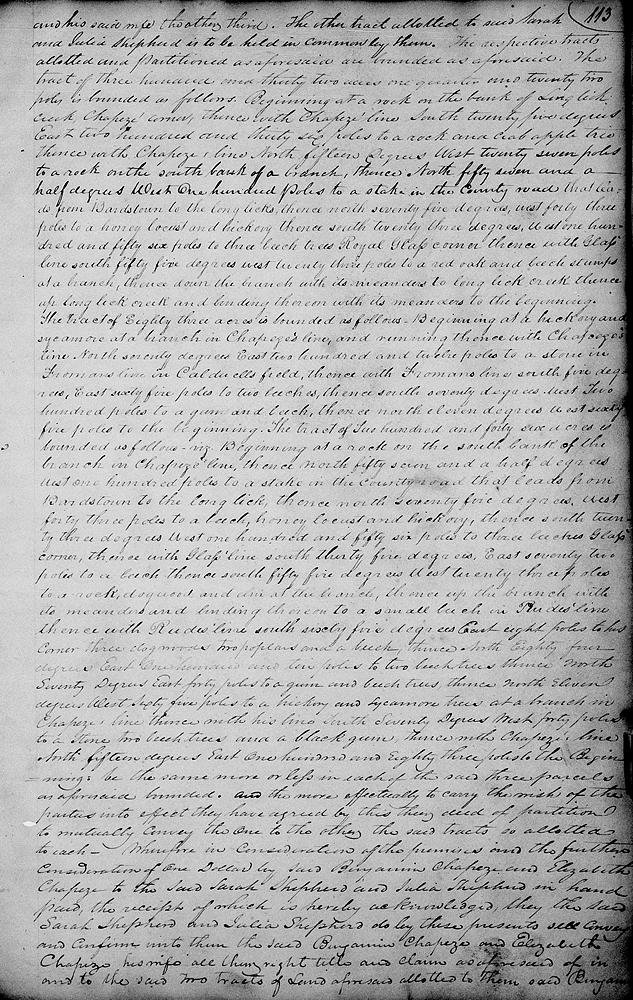 113
and his said wife the other third. The other tract allotted to said Sarah
and Julia Shepherd is to be held in common by them. The respective tracts
allotted and partitioned as aforesaid are bounded as aforesaid. The
tract of three hundred and thirty two acres one quarter and twenty two
poles is bounded as follows. Beginning at a rock on the bank of Long lick
creek Chapeze' corner, thence with Chapeze' line South twenty five degrees
East two hundred and thirty six poles to a rock and crab apple tree
thence with Chapeze' line North fifteen Degrees West twenty seven poles
to a rock on the south bank of a branch, thence North fifty seven and a
half degrees West One hundred Poles to a stake in the County road that lea-
ds from Bardstown to the long licks, thence north seventy five degrees, west forty three
poles to a honey locust and hickory thence south twenty three degrees, West one hun-
dred and fifty six poles to three beech trees Royal Glass corner thence with Glass'
line south fifty five degrees west twenty three poles to a red oak and beech stumps
at a branch, thence down the branch with its meanders to long lick creek thence
up long lick creek and binding thereon with its meanders to the beginning.
The tract of Eighty three acres is bounded as follows - Beginning at a hickory and
sycamore at a branch in Chapeze's line, and running thence with Chapeze's
line North seventy degrees East two hundred and twelve poles to a stone in
Fromans line in Caldwells field, thence with Fromans line south five deg-
rees, East sixty five poles to two beeches, thence south seventy degrees West Two
hundred poles to a gum and beech, thence north eleven degrees West sixty
five poles to the beginning. The tract of Two hundred and forty six acres is
bounded as follows - viz. Beginning at a rock on the south bank of the
branch in Chapeze' line, thence north fifty seven and a half degrees
West one hundred poles to a stake in the County road that leads from
Bardstown to the long lick, thence north seventy five degrees, West
forty three poles to a beech, honey locust and hickory, thence south twen-
ty three degrees West one hundred and fifty six poles to three beeches Glass'
corner, thence with Glass' line south thirty five degrees, East seventy two
poles to a beech thence south fifty five degrees West twenty three poles
to a rock, dogwood and elm at the branch, thence up the branch with
its meanders and binding thereon to a small beech in Rudes' line
thence with Rudes' line south sixty five degrees East eight poles to his
corner three dogwoods two poplars and a beech, thence North Eighty four
degrees East One hundred and ten poles to two beech trees thence North
Seventy Degrees East forty poles to a gum and beech trees, thence North Eleven
degrees West Sixty five poles to a hickory and Sycamore trees at a branch in
Chapeze' line thence with his line South Seventy Degrees West forty poles
to a Stone two beech trees and a black gum, thence with Chapeze' line
North fifteen degrees East One hundred and Eighty three poles to the Begin
ning: be the same more or less in each of the said three parcels
as aforesaid bounded. And the more effectually to carry the wish of the
parties into effect they have agreed by this their deed of partition
to mutually Convey the One to the other the said tracts so allotted
to each - Wherefore in Consideration of the premises and the further
Consideration of One Dollar by said Benjamin Chapeze and Elizabeth
Chapeze to the Said Sarah Shepherd and Julia Shepherd in hand
paid, the receipt of which is hereby acknowledged, they the Said
Sarah Shepherd and Julia Shepherd do by these presents sell Convey
and Confirm unto them the said Benjamin Chapeze and Elizabeth
Chapeze his wife all their right title and claim as aforesaid of in
and to the said two tracts of Land aforesaid allotted to them said Benjam